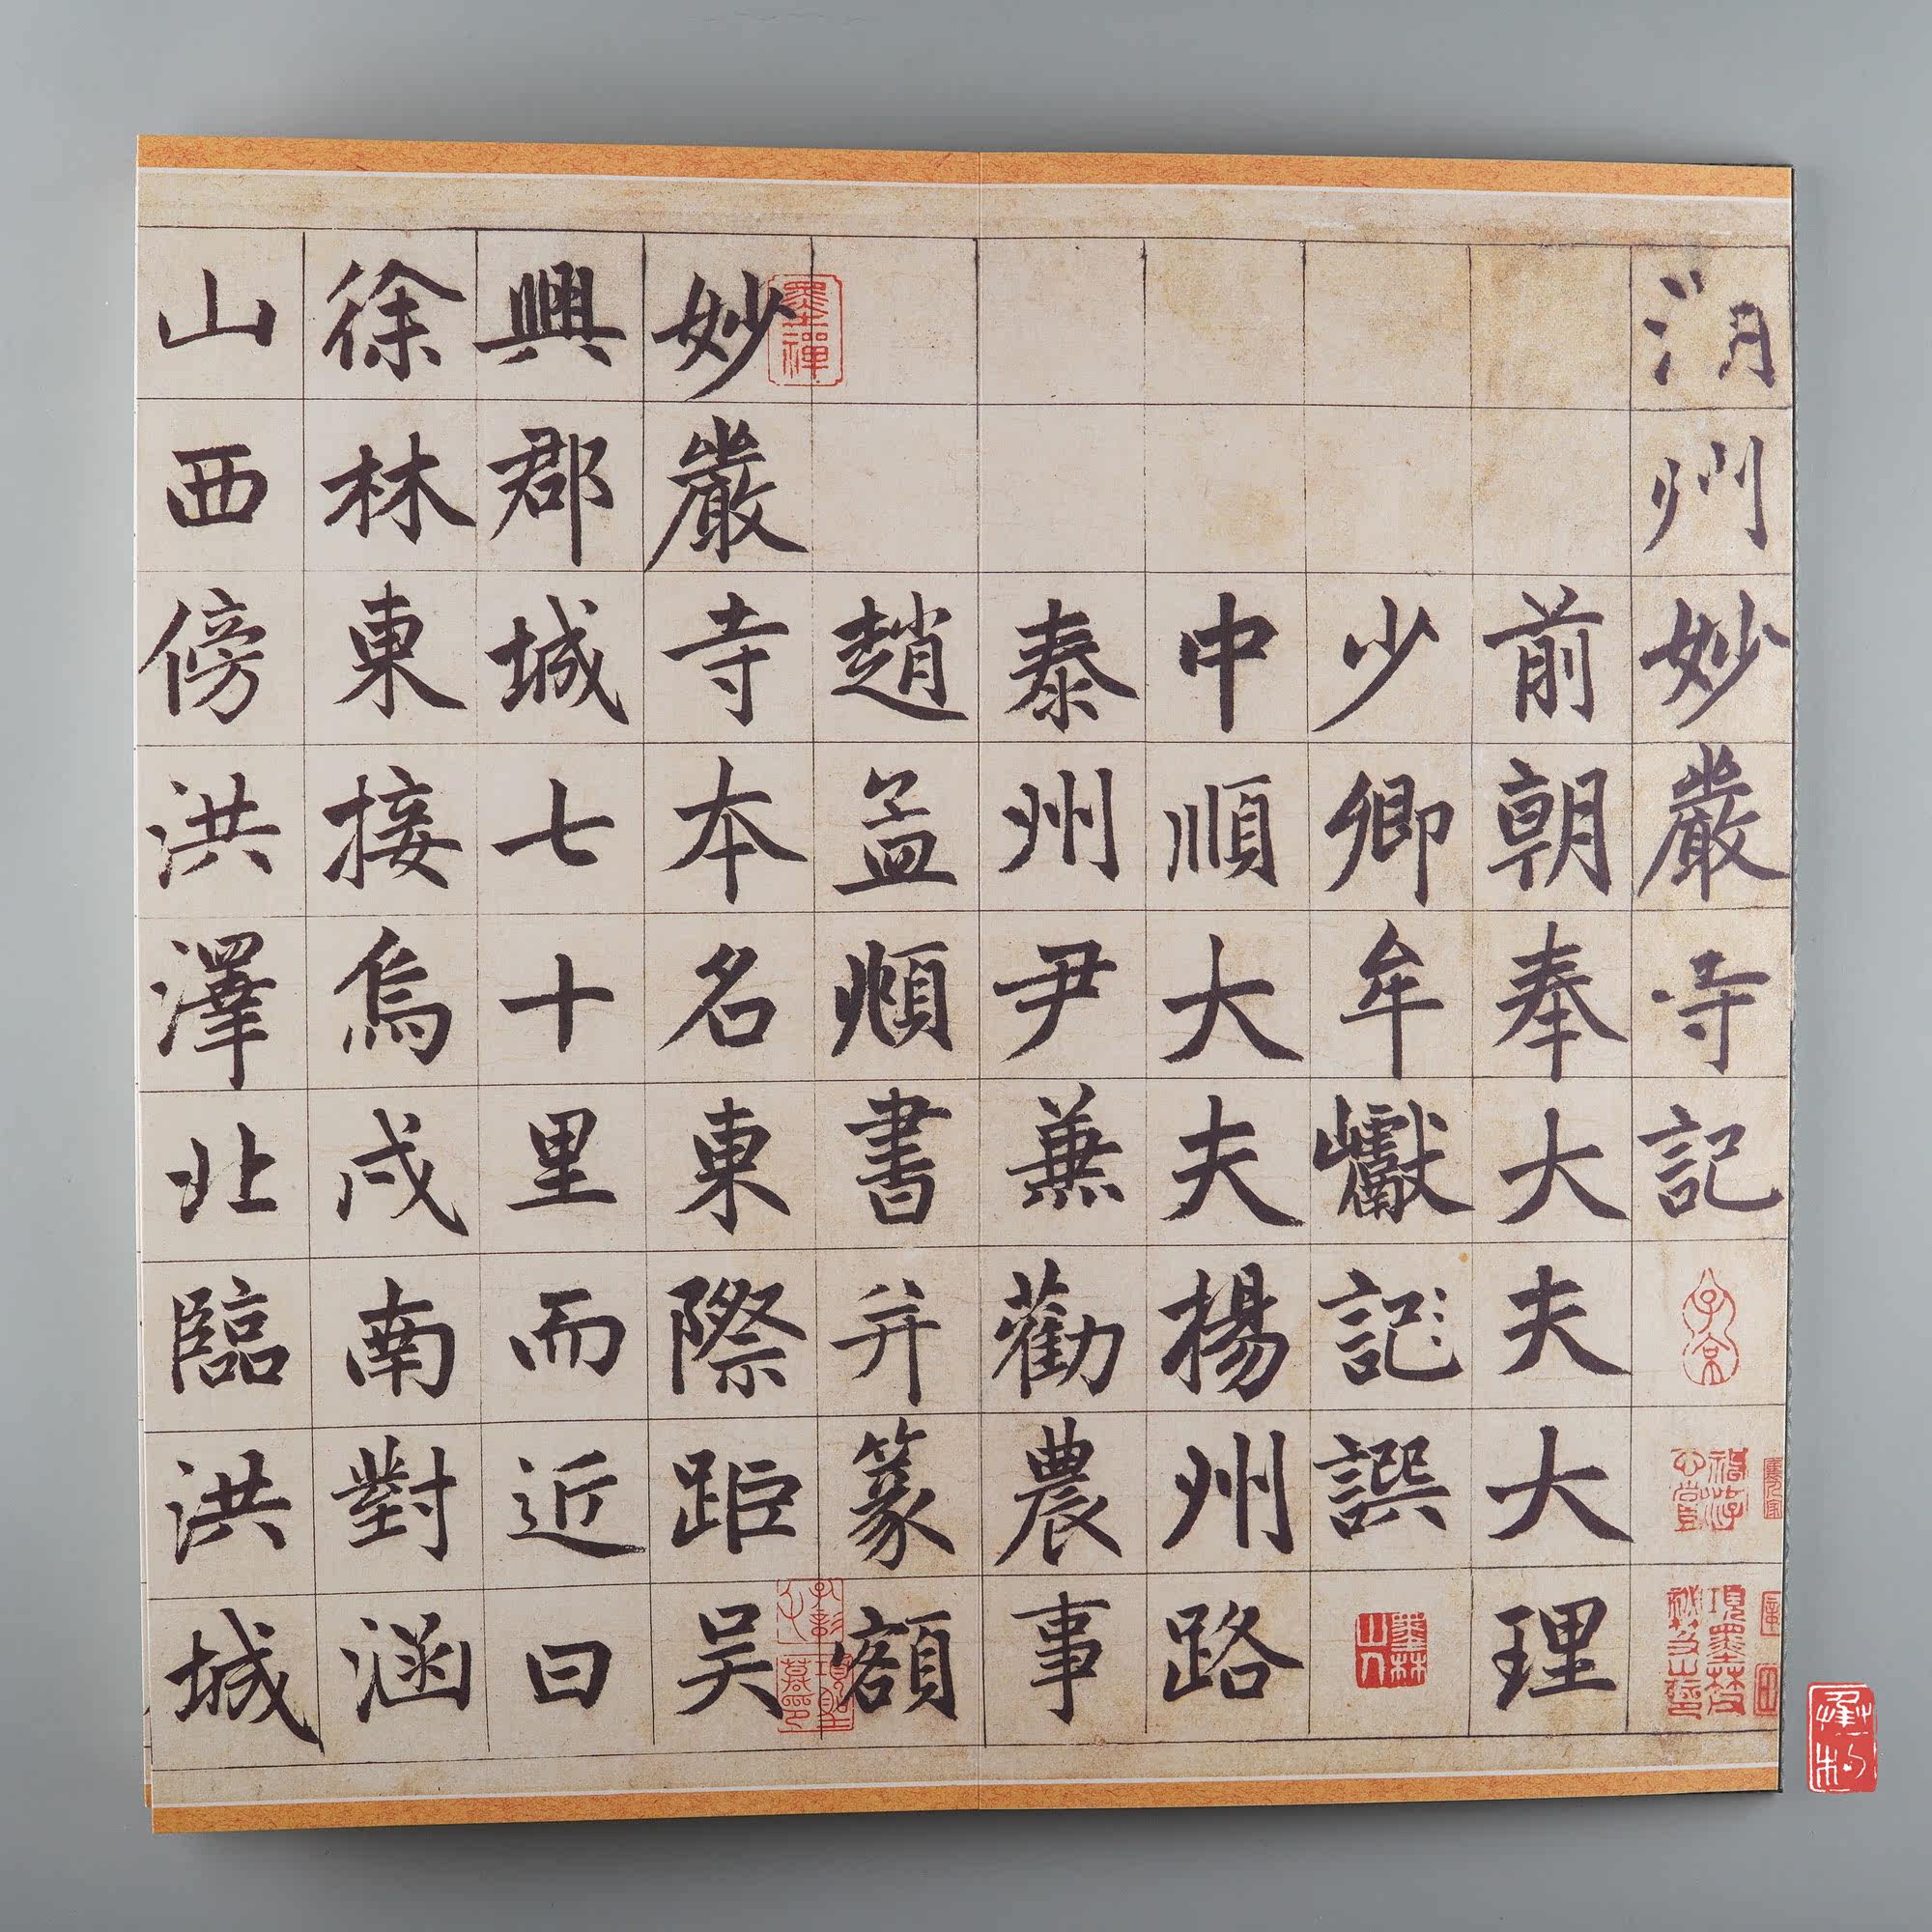 湖州妙嚴寺記
前朝奉大夫大理
少卿牟巘記譔
中順大夫楊州路
泰州尹兼勸農事
趙孟頫書并篆額
妙嚴寺本名東際距吴
興郡城七十里而近曰
徐林東接烏戍南對涵
山西傍洪澤北臨洪城
墨禪
墨林山人